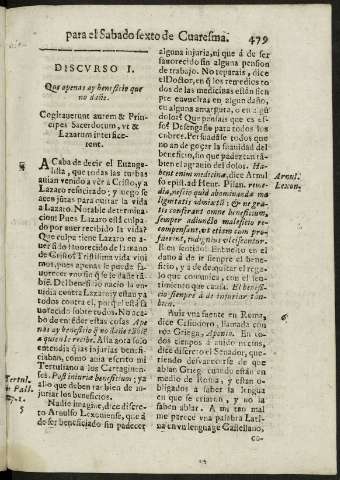 para el Sabado sexto de Cuaresma. 479
DISCVRSO I.
Que apenas ay beneficio que
no dañe.
Cogitauerunt autem & Prin-
cipes Sacerdotum, vt &
Lazarum interfice-
rent.
ACaba de decir el Euange-
lista, que todas las turbas
auian venido a vèr a Cristo, y a
Lazaro resucitado; y luego se
acen juntas para quitar la vida
a Lazaro. Notable determina-
cion! Pues Lazaro està culpa-
do por auer recibido la vida?
Que culpa tiene Lazaro en a-
uer sido fauorecido de la mano
de Cristo? Tristissima vida viui-
mos, pues apenas le puede fa-
uorecer
bié. Del beneficio nacio la en-
uidia contra Lazaro; y estan ya
todos contra el, porque está fa
uorecido sobre todos. No aca-
bo de entender estas cosas Ape
nas ay beneficio q̃ no dañe
a quien le recibe. Assi aora solo
entendia q̃ las injurias
auia escrito mi
Tertuliano a los Cartaginen-
ses. Post iniuriæ beneficium; ya
allo que deben tambien de in-
juriar los beneficios.
Nadie imagine, dice discre-
to Arnulfo Lexouiense, que à
de ser beneficiado sin padecer
Tertul.
de Pall.
c. 1.
5
alguna injuria, ni que á de ser
fauorecido sin alguna pension
de trabajo. No reparais, dice
el Doctor, en q̃ los remedios to
dos de las medicinas están siem
pre envueltas en algun daño,
en alguna amargura, o en algũ
dolor? Que pensais que es es-
so? Desengaño para todos los
cobres. Persuadese todos que
no an de goçar la suauidad del
beneficio, sin que padezcan tã-
bien el agrauio del dolor. Ha-
bent enim medicinæ, dice Arnul
fo epist. ad Henr. Pisan. reme-
dia, nescio quid abominandæ ma
lignitatis admixti; & ne gra-
tis conferant omne beneficium,
semper adiundio molestiæ re
compensatur, vt etiam cum pro
fuerint, indignius videantur.
En mi sentido: Enbuelto en el
daño à de ir siempre el benefi-
cio, y a de desquitar el rega-
lo que comunica, con el sen-
timiento que causa. El benefi-
cio siempre à de injuriar tam-
bien.
Auia vna fuente en Roma,
dice Casiodoro, llamada con
voz Griega, Aponio. En to-
dos tiempos à auido necios,
dice discreto el Senador, que-
riendo desuanecerse de que
ablan Griego quando están en
medio de Roma, y estan o-
bligados a saber la lengua
en que se crianen, y no la
saben ablar. A mi tan mal
me parece vna palabra Lati-
na en vn lenguage Castellano,
co-
Arnul.
Lexou.
6